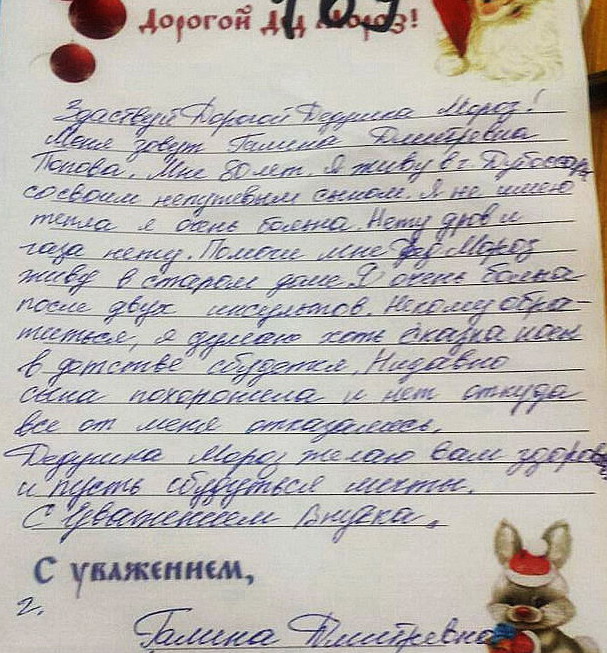 Дорогой Дед Мороз!
Здаствуй Дорогой Дедушка Мороз!
Меня зовут Галина Дмитревна
Попова. Мне 80 лет. Я живу в г. Дубоссары
со своим непутевым сыном. Я не имею
тепла я очень больна. Нету дров и
газа нету. Помоги мне Дед Мороз
живу в старом доме. Я очень больна
после двух инсультов. Некому обра-
титься, я думаю хоть сказка
в дотстве сбудется. Нидавно
сына похоронила и нет откуда
все от меня отказались.
Дедушка Мороз желаю вам здоров
и пусть сбудуться мечты.
С Уважением Внучка.
С уважением,
г.
Галина Дмитревна